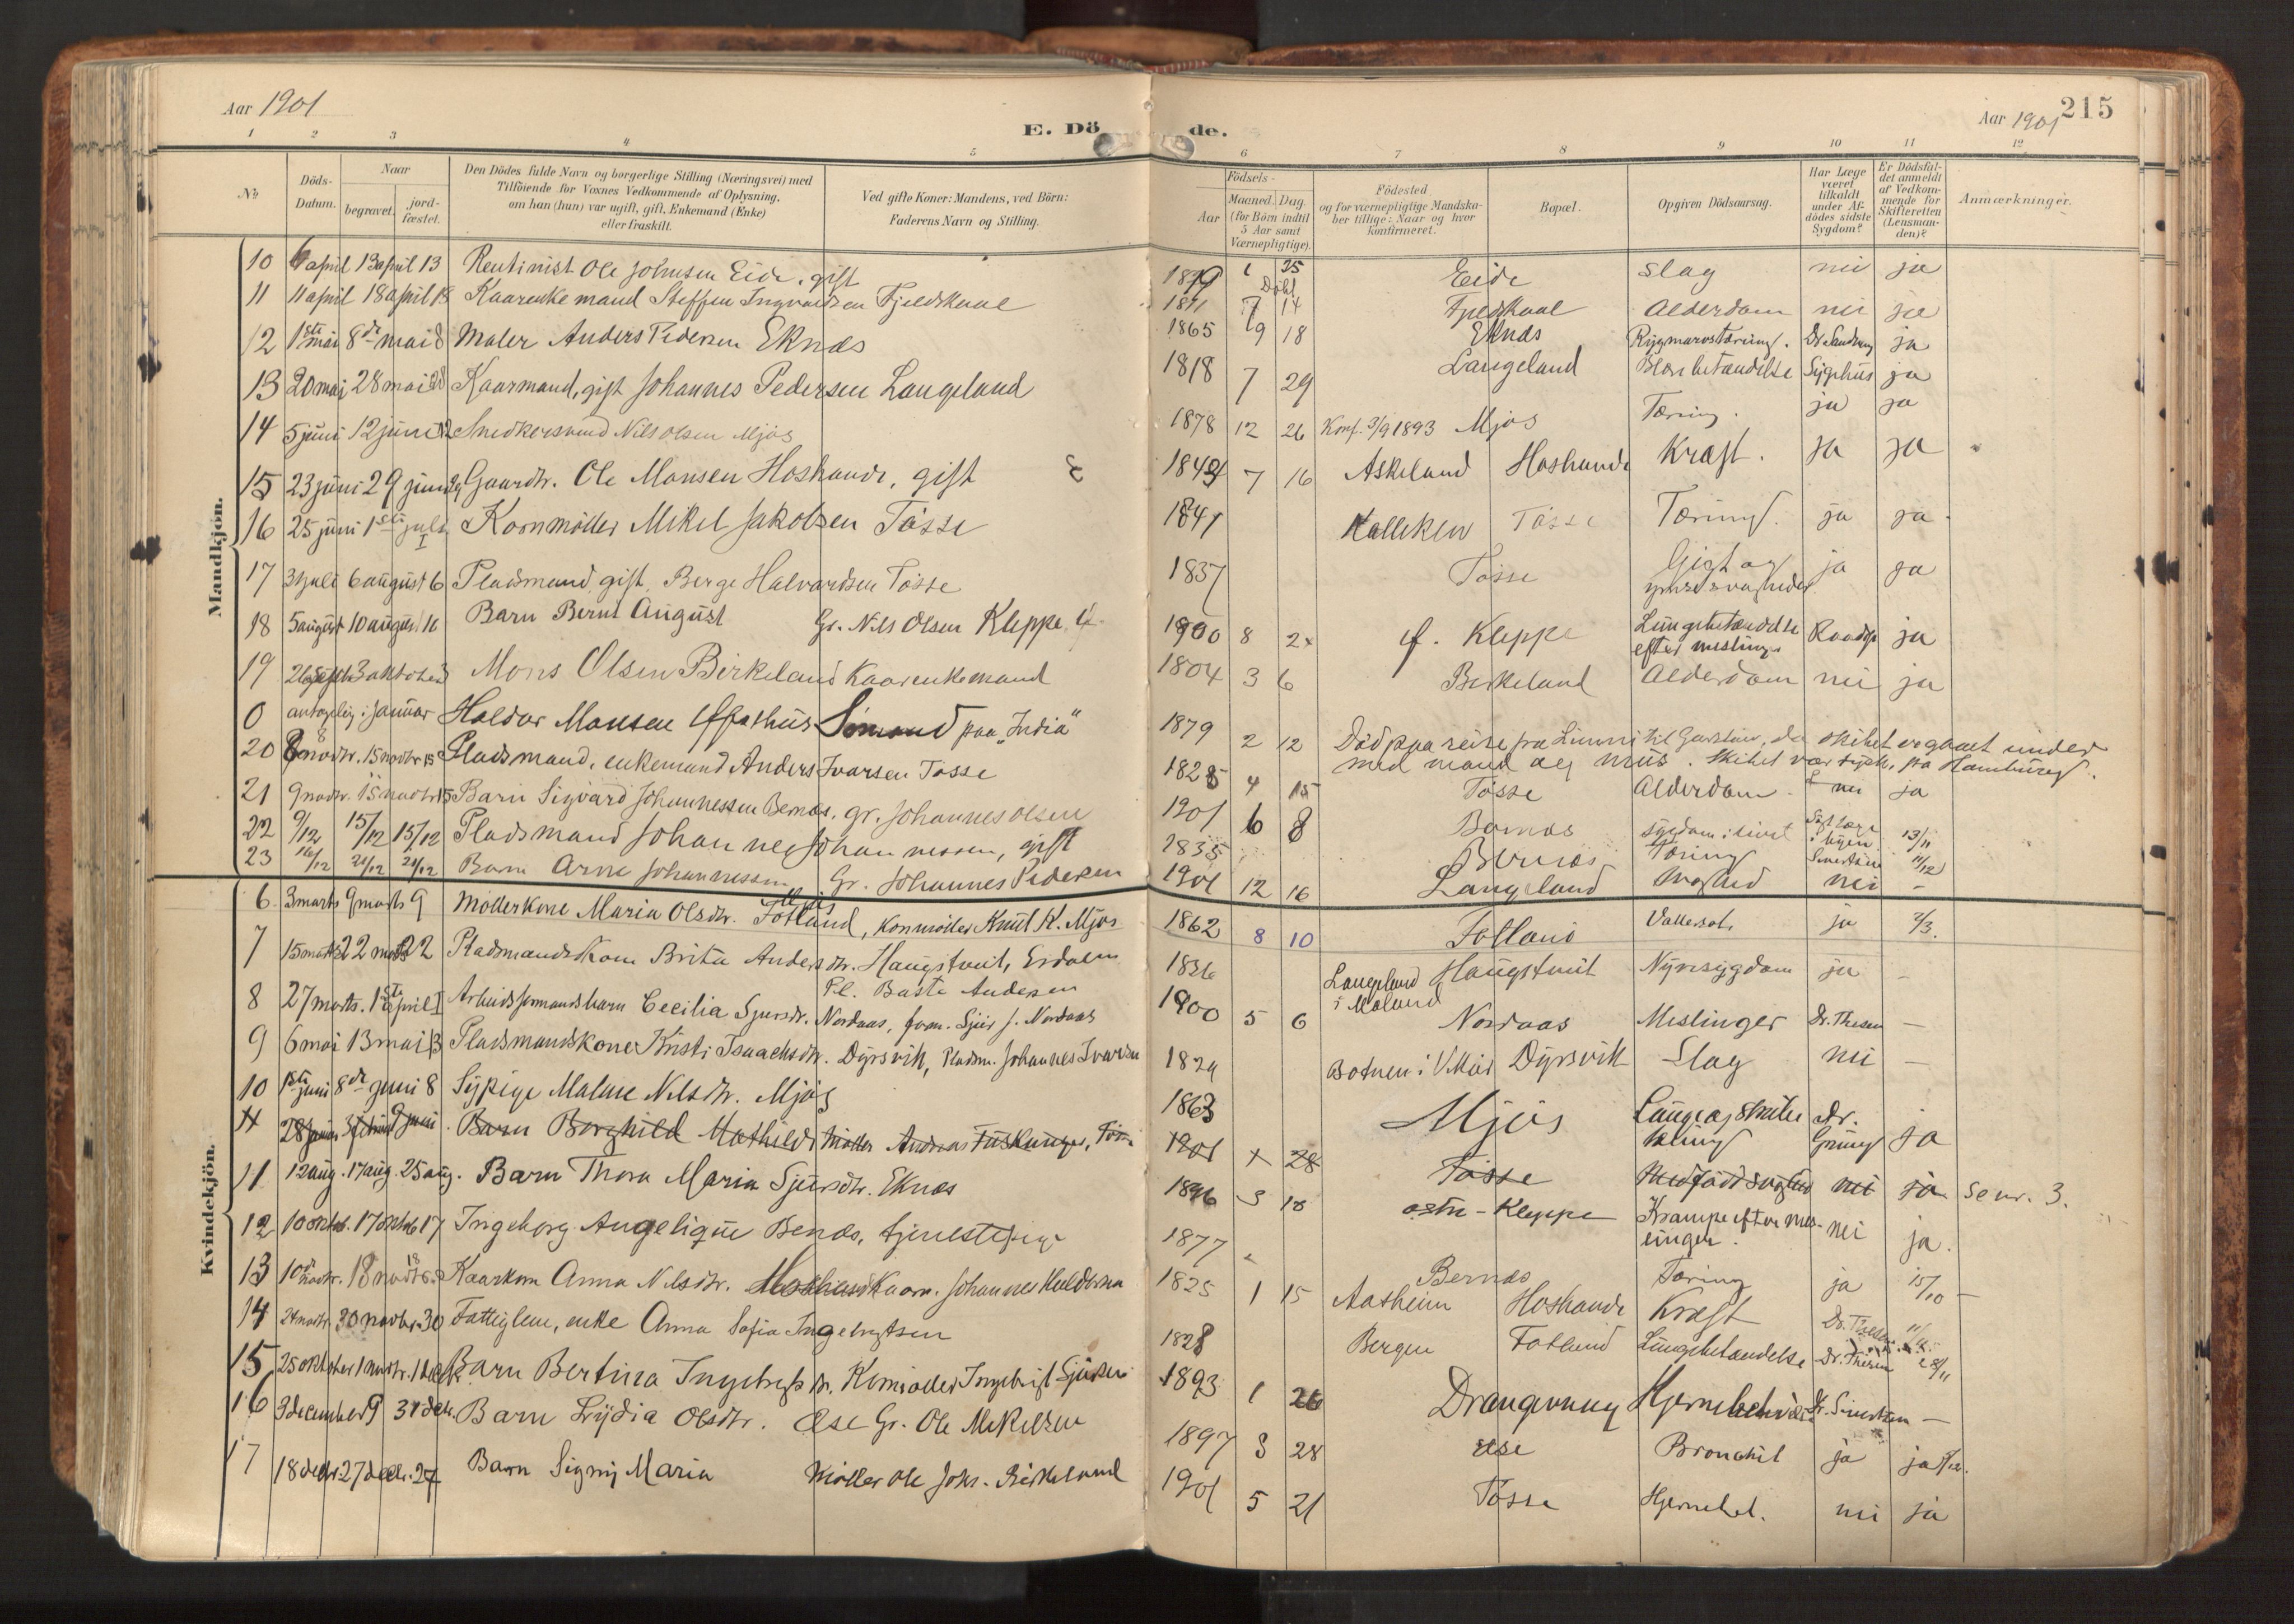 Aar 1901
E. Döde.
Aar 1901
215
1 2 3 4 5 6 7 8 9 10 11 12
No
Döds-Datum.
Naar
begravet.
jord-fæstet.
Den Dödes fulde Navn og borgerlige Stilling (Næringsvei) med
Tilföiende for Voxnes Vedkommende af Oplysning,
om han (hun) var ugift, gift, Enkemand (Enke)
eller fraskilt.
Ved gifte Koner: Mandens, ved Börn:
Faderens Navn og Stilling.
Födsels-
Aar
Maaned. Dag.
(for Börn indtil
5 Aar samt
Værnepligtige).
Födested
og for værnepligtige Mandska-
ber tillige: Naar og hvor
konfirmeret.
Bopæl.
Opgiven Dödsaarsag.
Har Læge
været
tilkaldt
under Af-
dödes sidste
Sygdom?
Er Dödsfal-
det anmeldt
af Vedkom-
mende for
Skifteretten
(Lensman-
den)?
Anmærkninger.
Mandkjön.
10 6 april 13 april 13 Rentinist Ole Johnsen Eide, gift 1 25 Eide slag nei ja
11 11 april 18 april 18 Kaarenkemand Steffen Ingvaldsen Fjeldskaal 7 14 Fjeldskaal Alderdom nei ja
12 1ste mai 8de mai 8 Maler Anders Pedersen Eknæs 1865 9 18 Eknæs Rygmarvstæring. ja
13 20 mai 28 mai 28 Kaarmand, gift Johannes Pedersen Langeland 1818 7 29 Langeland Sygehus ja
14 5 juni 12 juni 12 Snedkersvend Nils Olsen Mjøs 1878 12 26 Konf. 3/9 1893 Mjøs Tæring. ja ja
15 23 juni 29 juni 29 Gaardbr. Ole Monsen Hoshaude, gift 7 16 Askeland Hoshaude Kræft. ja ja
16 25 juni 1ste juli Kornmöller Mikel Jakobsen Tösse 1841 Kalleklev Tösse Tæring. ja ja
17 31 juli 6 august 6 Pladsmand, gift, Berge Halvardsen Tösse 1837 Tösse Gigt og ja ja
18 5 august 10 august Barn Bernt August Gr. Nils Olsen Kleppe 1900 8 Kleppe Lungebetændelse
efter meslinger ja
19 3 oktober 3 Mons Olsen Birkeland Kaarenkemand 1804 3 6 Birkeland Alderdom nei ja
0 antagelig i januar Haldor Monsen Sömand paa "India" 1879 2 12 Död paa reise fra til da skibet er gaaet under
med mand og mus. Skibet var tysk, fra Hamburg.
20 8 novbr. 15 novbr 15 Pladsmand, enkemand Anders Ivarsen Tösse 1825 4 15 Tösse Alderdom nei ja
21 9 novbr. 15 novbr 15 Barn Sigvard Johannessen Bernæs, gr. Johannes Olsen 1901 6 8 Bernæs 13/11
22 9/12 15/12 15/12 Pladsmand Johannes Johannessen, gift 1835 Bernæs Tæring 11/12
23 16/12 21/12 21/12 Barn Arne Johannessen Gr. Johannes Pedersen 1901 12 16 Langeland Svaghed nei –
Kvindekjön.
6 3 marts 9 marts 9 Möllerkone Maria Olsdtr. Fotland, Kornmöller Knut K. Mjøs 1862 8 10 Fotland Vattersot. ja 2/3.
7 15 marts 22 marts 22 Pladsmandskone Brita Andersdtr. Haugstveit, Pl. Baste Andersen 1826 Langeland Haugstveit Nyresygdom ja –
8 27 marts. 1ste april 1 Arbeidsformandsbarn Cecilia Sjursdtr. Nordaas, form. Sjur J. Nordaas 1900 5 6 Nordaas Meslinger Dr. Thesen –
9 6 mai 13 mai 13 Pladsmandskone Kristi Isaachsdtr. Dyrsvik, Pladsm. Johannes Ivarsen 1829 Botnen i Dyrsvik Slag nei –
10 1ste juni 8de juni 8 Sypige Malene Nilsdtr. Mjøs 1863 Mjøs Dr. ja
28 januar Barn Borghild Mathilde Möller Andreas 1901 1 28 Tösse Medfödt svaghed nei ja Se nr. 3.
11 12 aug. 17 aug. 25 aug. Barn Thora Maria Sjursdtr. Eknæs 3 18 østre-Kleppe Krampe efter mes-
linger. nei ja.
12 10 oktob. 17 oktob 17 Ingeborg Angelique Bernæs, tjenestepige 1877 Bernæs Tæring ja 15/10 –
13 10de novbr. 18 novbr. 18 Kaarkone Anna Nilsdtr. Hoshaude Kaarm. Johannes Haldorsen 1825 1 15 Aasheim Hoshaude Kræft 11/11
14 24 novbr. 30 novbr. 30 Fattiglem, enke Anna Sofia Ingebrigtsen 1828 Bergen Fotland Lungebetændelse Dr. Thesen 28/11
15 25 oktober 1 novbr. Barn Bertina Ingebrigtsdtr. Kornmöller Ingebrigt Sjursen 1893 1 26 Drangevaag Dr. Sivertsen –
16 3 december 9 31 decbr. Barn Lydia Olsdtr. Øse Gr. Ole Mikelsen 1897 3 28 Øse Bronchit ja ja
17 18 decbr. 27 decbr. 27 Barn Signy Maria Möller Ole Johs. Birkeland 1901 5 21 Tösse Hjernebet. nei ja